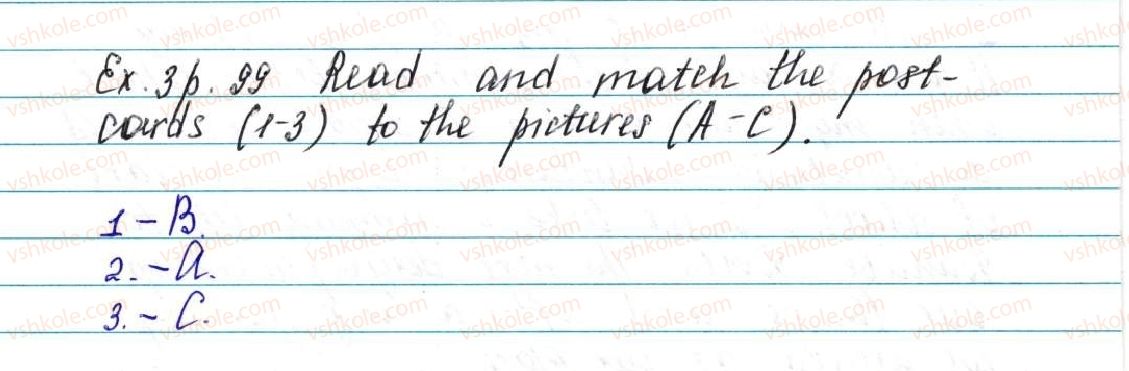 Ex. 3 p. 99 Read and match the post-
cards (1-3) to the pictures (A-C).
1 - B.
2. - A.
3. - C.
vshkole.com